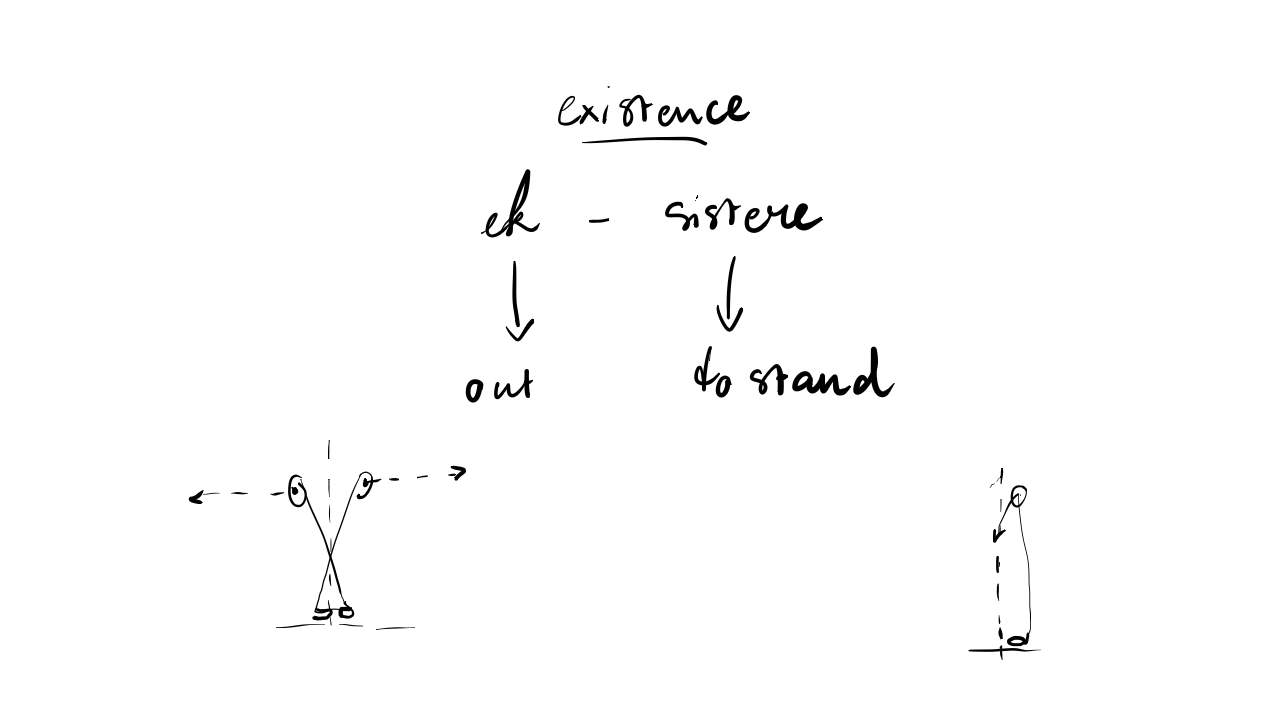 existence
ek - sistere
out to stand